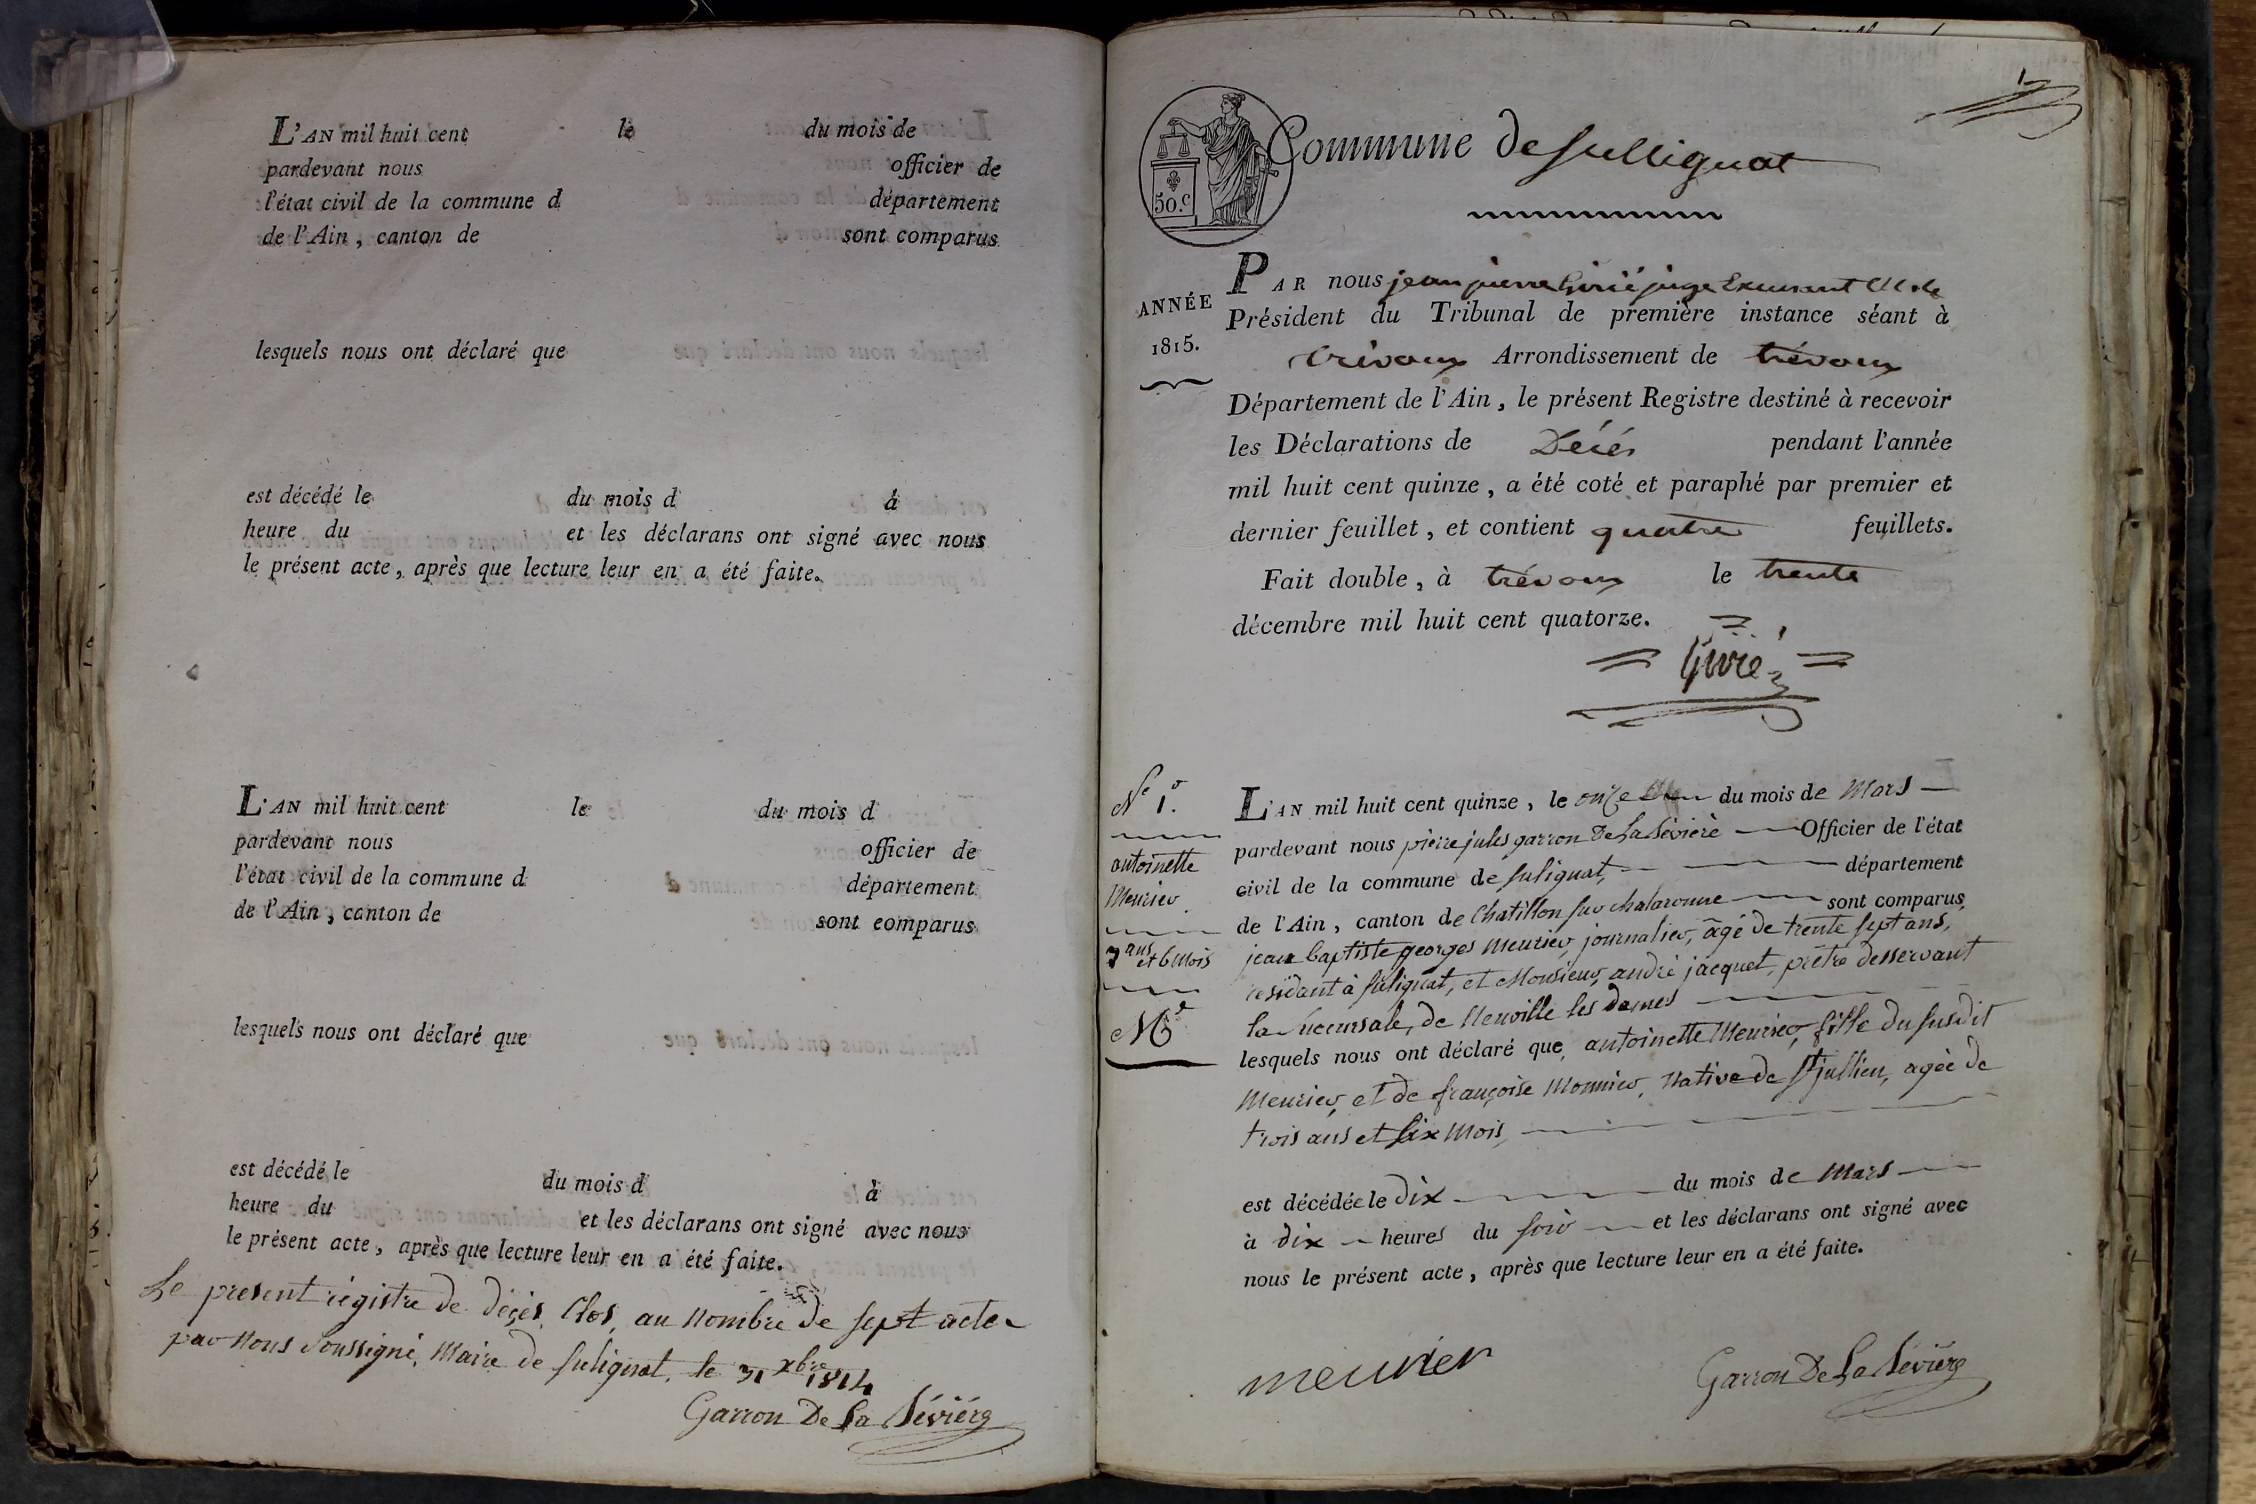 L'AN mil huit cent le du mois de
pardevant nous officier de
l'état civil de la commune d département
de l'Ain, canton de sont comparus
lesquels nous ont déclaré que
est décédé le du mois d à
heure du et les déclarans ont signé avec nous
le présent acte, après que lecture leur en a été faite.
L'AN mil huit cent le du mois d
pardevant nous officier de
l'état civil de la commune d département
de l'Ain, canton de sont comparus
lesquels nous ont déclaré que
est décédé le du mois d à
heure du et les déclarans ont signé avec nous
le présent acte, après que lecture leur en a été faite.
Le present régistre de déçès, Clos, au nombre de sept acte
par nous soussigné, Maire de sulignat, le 31 xbre 1814
Garron De La Séviére
1
50.c
Commune de sullignat
ANNÉE
1815.
PAR nous jean pierre Givrié juge
Président du Tribunal de première instance séant à
trévoux Arrondissement de trévoux
Département de l'Ain, le présent Registre destiné à recevoir
les Déclarations de Décés pendant l'année
mil huit cent quinze, a été coté et paraphé par premier et
dernier feuillet, et contient quatre feuillets.
Fait double, à trévoux le trente
décembre mil huit cent quatorze.
N° 1.°
antoinette
Meurier
3 ans et 6 Mois
L'AN mil huit cent quinze, le onze du mois de Mars
pardevant nous pierre jules garron De La Sévière Officier de l'état
civil de la commune de sulignat, département
de l'Ain, canton de Chatillon sur chalaronne sont comparus
jean baptiste georges Meurier, journalier, âgé de trente sept ans,
résidant à sulignat, et Monsieur, andré jacquet, prêtre desservant
la succursale, de Neuville les dames
lesquels nous ont déclaré que, antoinette Meurier, fille du susdit
Meurier, et de françoise Monnier, Native de St jullien, agée de
trois ans et six Mois,
est décédée le dix du mois de Mars
à dix heures du soir et les déclarans ont signé avec
nous le présent acte, après que lecture leur en a été faite.
meurier Garron De La Séviére